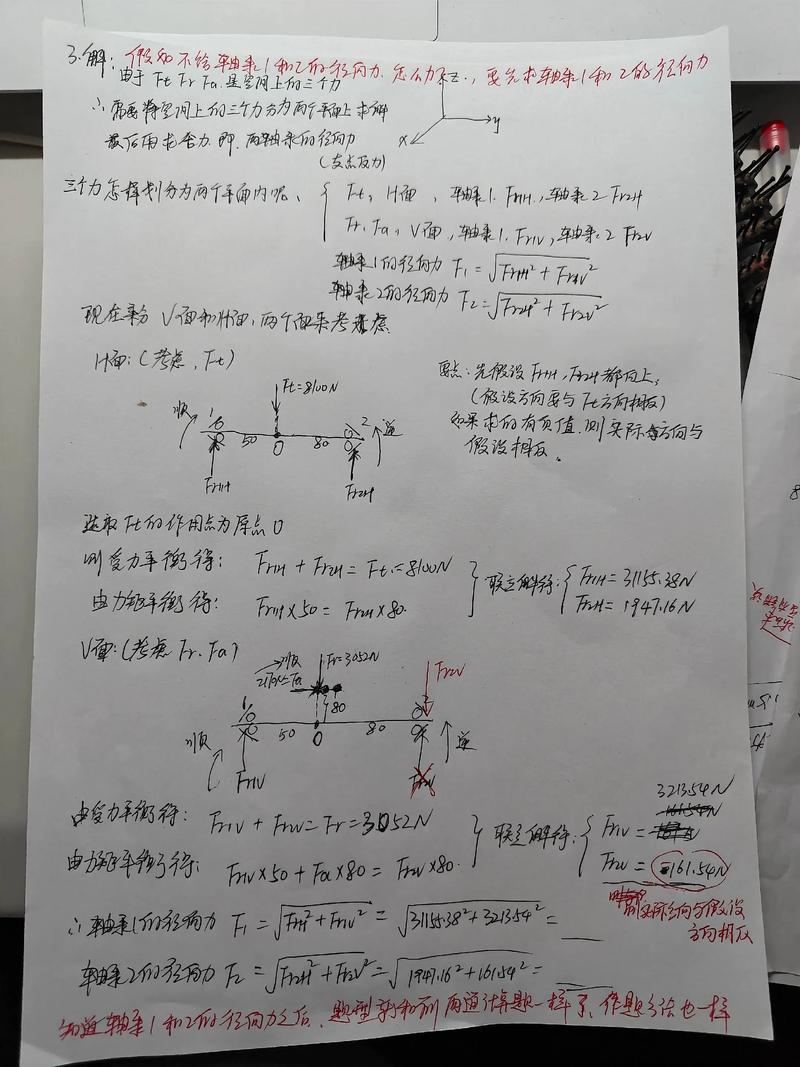 3.解: 假如不给轴承1和2的径向力.怎么办..., 要先求轴承1和2的径向力
由于 Ft Fr Fa 是空间上的三个力
∴ 需要将空间上的三个力分为两个平面上求解
最后再求合力.即.两轴承的径向力
(支点反力)
z
y
x
三个力怎样划分为两个平面内呢、
Ft, H面, 轴承1. Fr1H, 轴承2 Fr2H
Fr、Fa, V面, 轴承1. Fr1V, 轴承2 Fr2V
轴承1的径向力 F1 = √Fr1H² + Fr1V²
轴承2的径向力 F2 = √Fr2H² + Fr2V²
现在来分 V面和H面, 两个面来考虑
H面: (考虑, Ft)
要点: 先假设 Fr1H, Fr2H 都向上,
(假设方向要与Ft方向相反)
如果求的有负值.则实际方向与
假设相反。
Ft=8100N
顺
1
50
0
80
2
逆
Fr1H
Fr2H
选取Ft的作用点为原点0
则受力平衡得: Fr1H + Fr2H = Ft = 8100N
由力矩平衡得: Fr1H×50 = Fr2H×80.
联立解得:
Fr1H = 31155.38N
Fr2H = 1947.16N
V面: (考虑 Fr. Fa)
顺
Fr=3052N
Fr2V
80
1
50
0
80
2
顺
逆
Fr1V
Fr2V
由受力平衡得: Fr1V + Fr2V = Fr = 3052N
由力矩平衡得: Fr1V×50 + Fa×80 = Fr2V×80.
联立解得:
3213.54N
Fr1V =
Fr2V = -161.54N
则实际方向与假设
方向相反
∴ 轴承1的径向力 F1 = √Fr1H² + Fr1V² = √31155.38² + 3213.54² =
轴承2的径向力 F2 = √Fr2H² + Fr2V² = √1947.16² + 161.54² =
知道轴承1和2的径向力之后、题型就和前两道计算题一样了、作题方法也一样